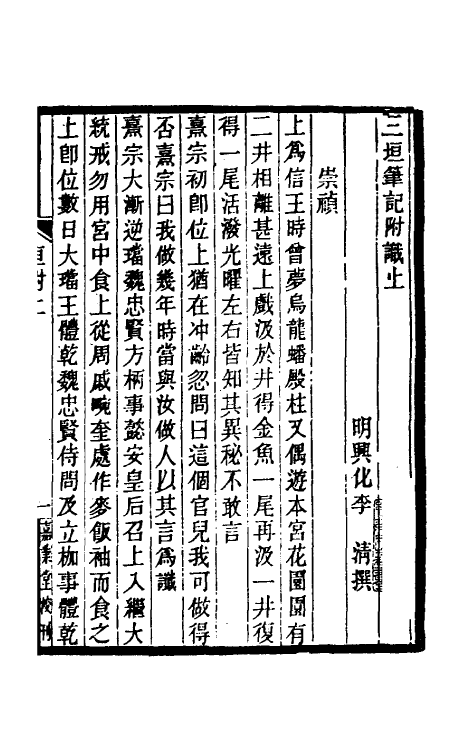 三垣筆記附識上
明興化李　清撰
崇禎
上爲信王時曾夢烏龍蟠殿柱又偶遊本宮花園園有
二井相離甚遠上戲汲於井得金魚一尾再汲一井復
得一尾活潑光曜左右皆知其異秘不敢言
熹宗初卽位上猶在冲齡忽問曰這個官兒我可做得
否熹宗曰我做幾年時當與汝做人以其言爲讖
熹宗大漸逆璫魏忠賢方柄事懿安皇后召上入繼大
統戒勿用宮中食上從周戚畹奎處作麥飯袖而食之
上卽位數日大璫王體乾魏忠賢侍間及立枷事體乾
垣附上
一
嘉業堂校刊